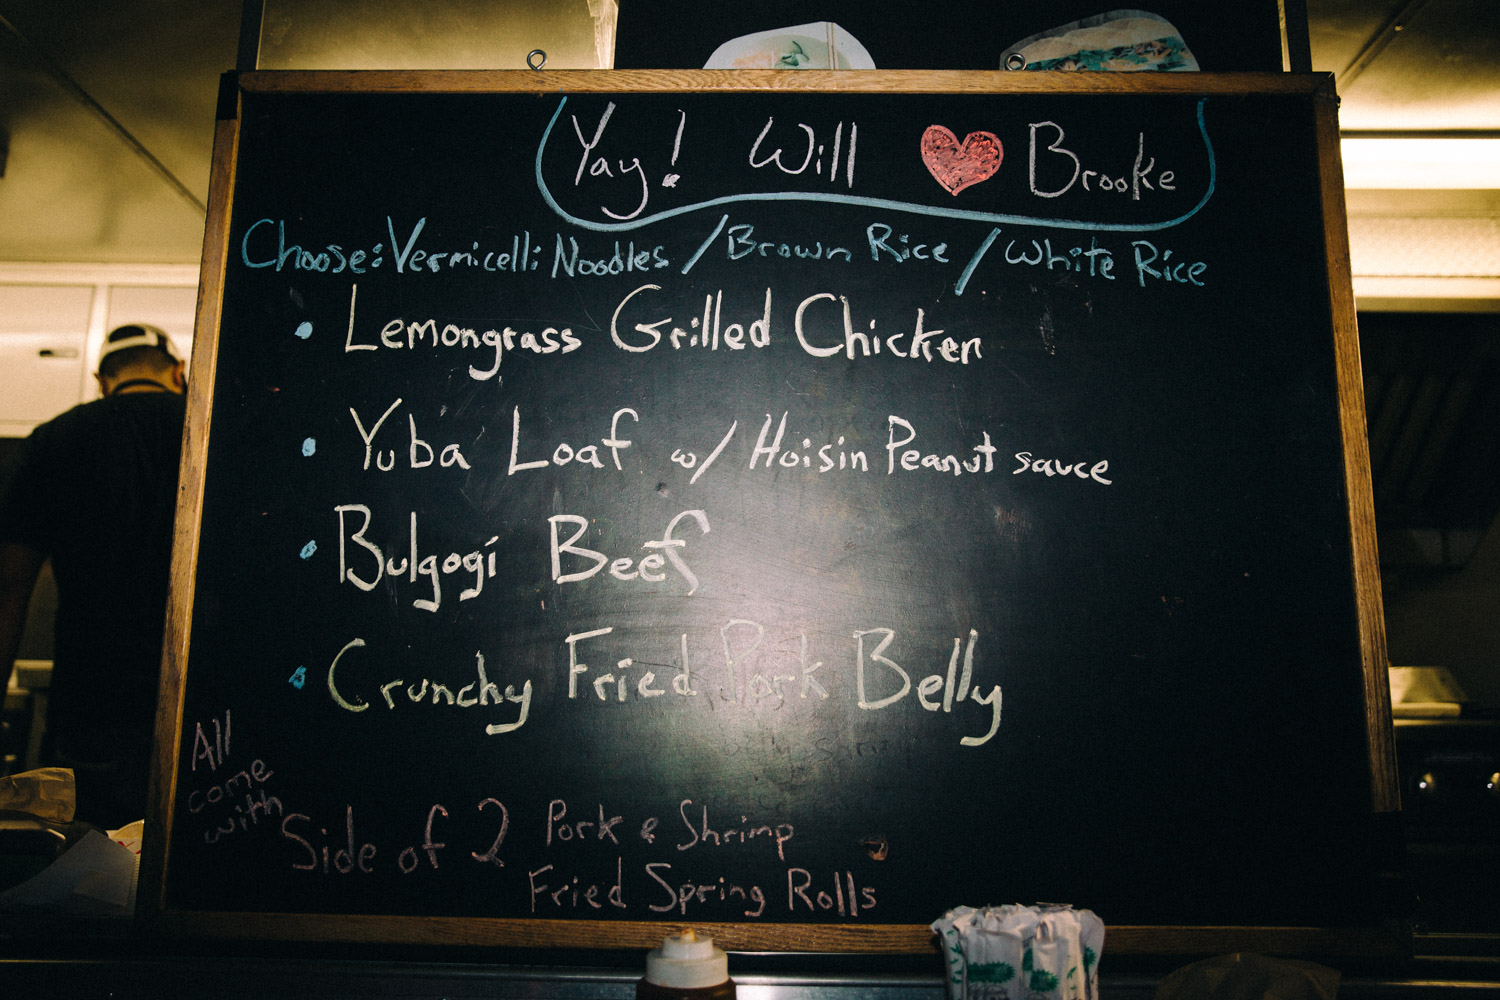 Yay! Will ♥ Brooke
Choose: Vermicelli Noodles / Brown Rice / White Rice
• Lemongrass Grilled Chicken
• Yuba Loaf w/ Hoisin Peanut sauce
• Bulgogi Beef
• Crunchy Fried Pork Belly
All
come
with
Side of 2 Pork & Shrimp
Fried Spring Rolls